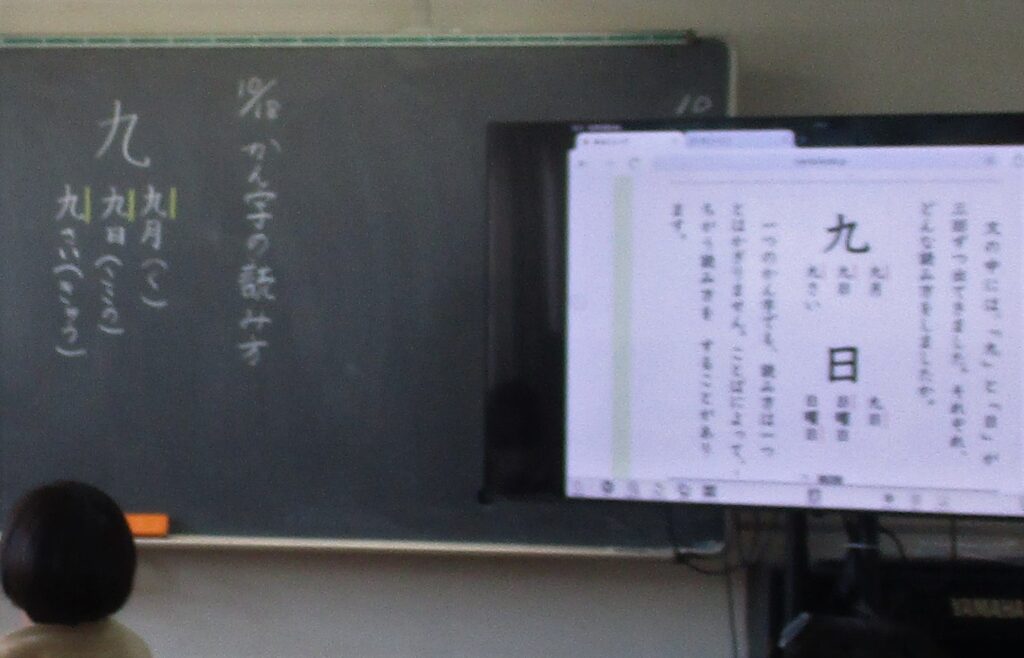 10/18 かん字の読み方
九
九月(く)
九日(ここの)
九さい(きゅう)
10
文の中には、「九」と「日」が
三回ずつ出てきました。それぞれ、
どんな読み方をしましたか。
九
九月
九日
九さい
日
九日
日曜日
日曜日
一つのかん字でも、読み方は一つ
とはかぎりません。ことばによって、
ちがう読み方を することがあり
ます。
YAMAHA